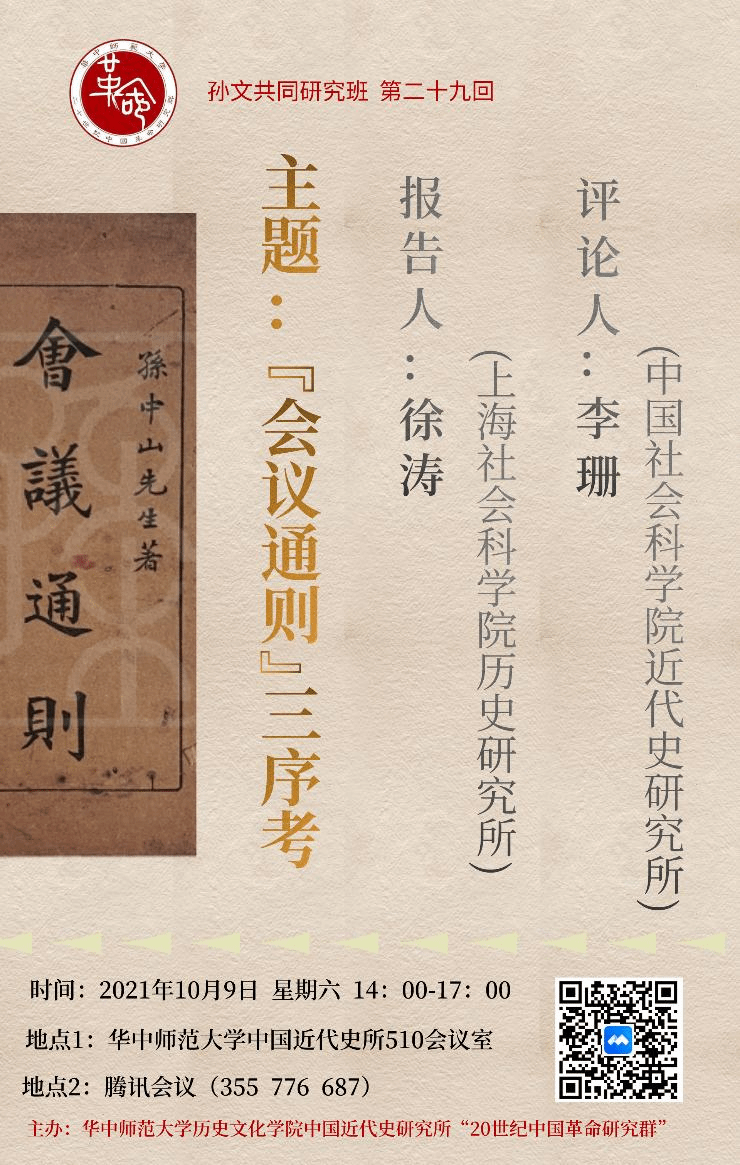 孙文共同研究班 第二十九回
主题：『会议通则』三序考
报告人：徐涛
(上海社会科学院历史研究所)
评论人：李珊
(中国社会科学院近代史研究所)
孫中山先生著
會議通則
时间：2021年10月9日 星期六 14：00-17：00
地点1：华中师范大学中国近代史所510会议室
地点2：腾讯会议（355 776 687）
主办：华中师范大学历史文化学院中国近代史研究所“20世纪中国革命研究群”